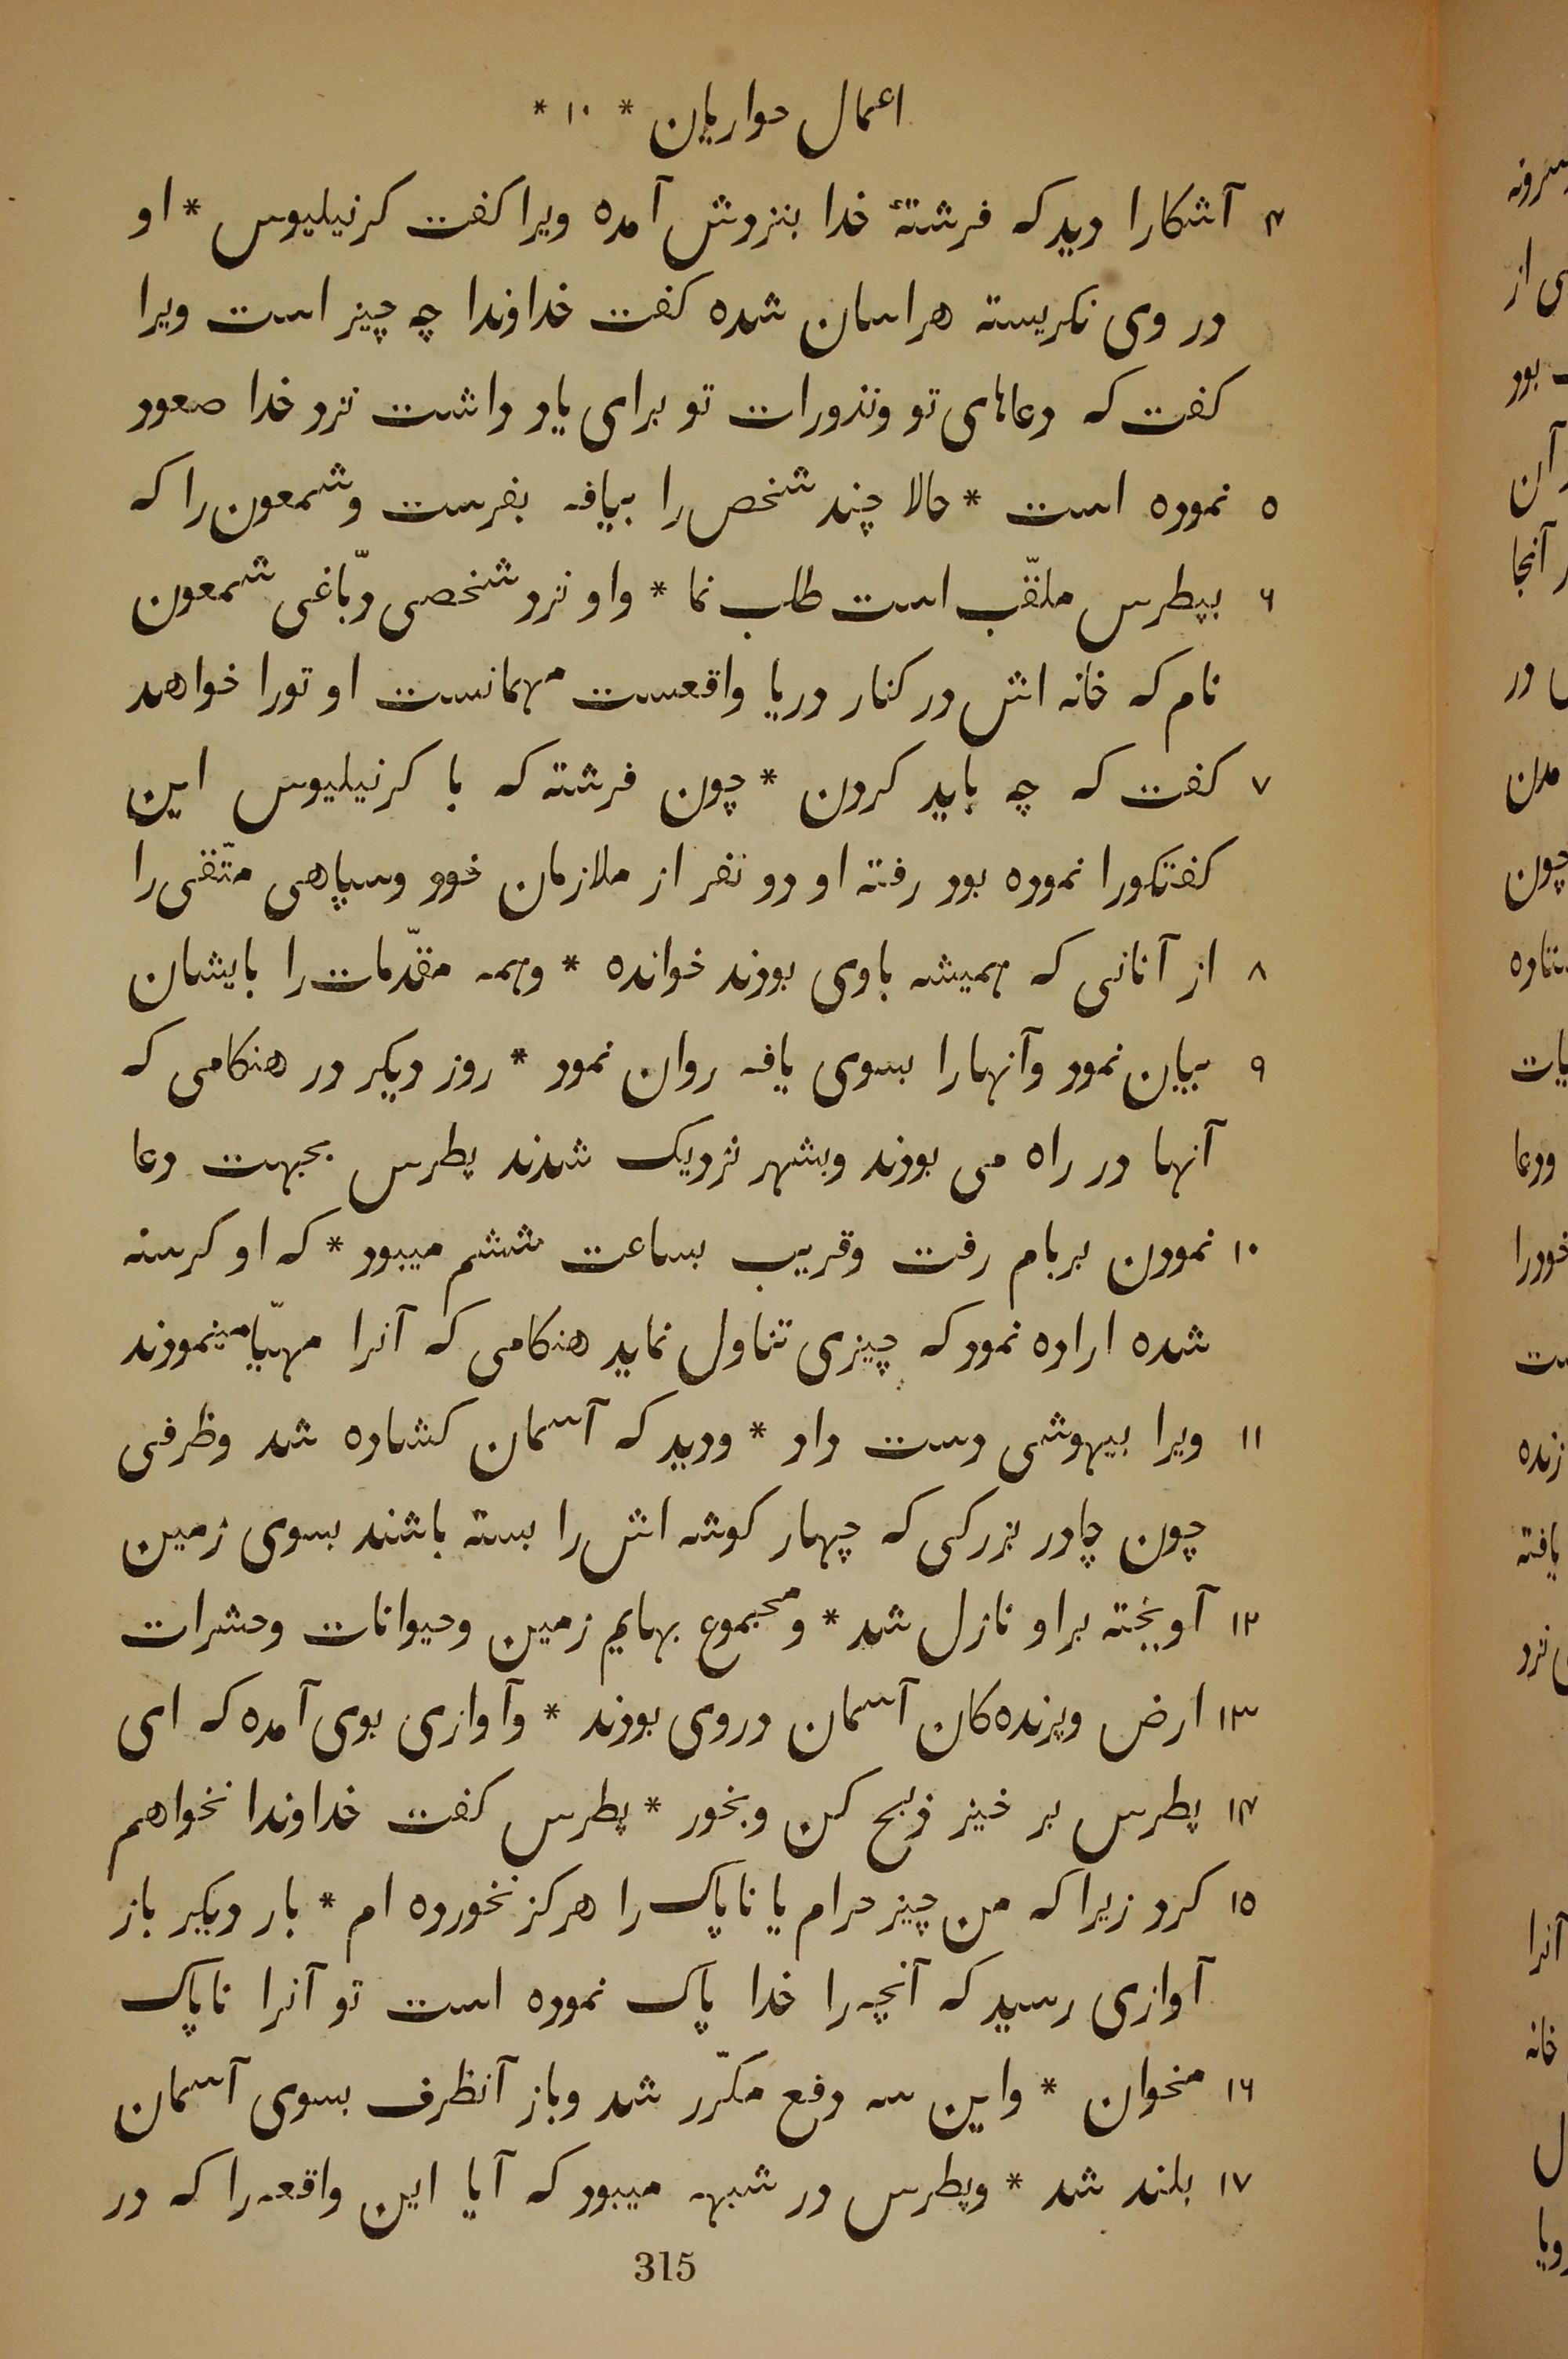 اعمال حواریان * ۱۰ *
۴ آشکارا دید که فرشتهٔ خدا بنزدش آمده ویرا کفت کرنیلیوس * او
در وی نکریسته هراسان شده کفت خداوندا چه چیز است ویرا
کفت که دعاهای تو ونذورات تو برای یاد داشت نزد خدا صعود
۵ نموده است * حالا چند شخص را بیافه بفرست وشمعون را که
۶ بپطرس ملقّب است طلب نما * واو نزد شخصی دبّاغی شمعون
نام که خانه اش در کنار دریا واقعست مهمانست او تورا خواهد
۷ کفت که چه باید کردن * چون فرشته که با کرنیلیوس این
کفتکورا نموده بود رفته او دو نفر از ملازمان خود وسپاهی متّقی را
۸ از آنانی که همیشه باوی بودند خوانده * وهمه مقدّمات را بایشان
۹ بیان نمود وآنهارا بسوی یافه روان نمود * روز دیکر در هنکامی که
آنها در راه می بودند وبشهر نزدیک شدند پطرس بجهت دعا
۱۰ نمودن بربام رفت وقریب بساعت ششم میبود * که او کرسنه
شده اراده نمود که چیزی تناول نماید هنکامی که آنرا مهیّا مینمودند
۱۱ ویرا بیهوشی دست داد * ودید که آسمان کشاده شد وظرفی
چون چادر بزرکی که چهار کوشه اش را بسته باشند بسوی زمین
۱۲ آویخته براو نازل شد * ومجموع بهایم زمین وحیوانات وحشرات
۱۳ ارض وپرنده کان آسمان دروی بودند * وآوازی بوی آمده که ای
۱۴ پطرس بر خیز ذبح کن وبخور * پطرس کفت خداوندا نخواهم
۱۵ کرد زیرا که من چیز حرام یا ناپاک را هرکز نخورده ام * بار دیکر باز
آوازی رسید که آنچه را خدا پاک نموده است تو آنرا ناپاک
۱۶ مخوان * واین سه دفع مکرّر شد وباز آنظرف بسوی آسمان
۱۷ بلند شد * وپطرس در شبهه میبود که آیا این واقعه را که در
315